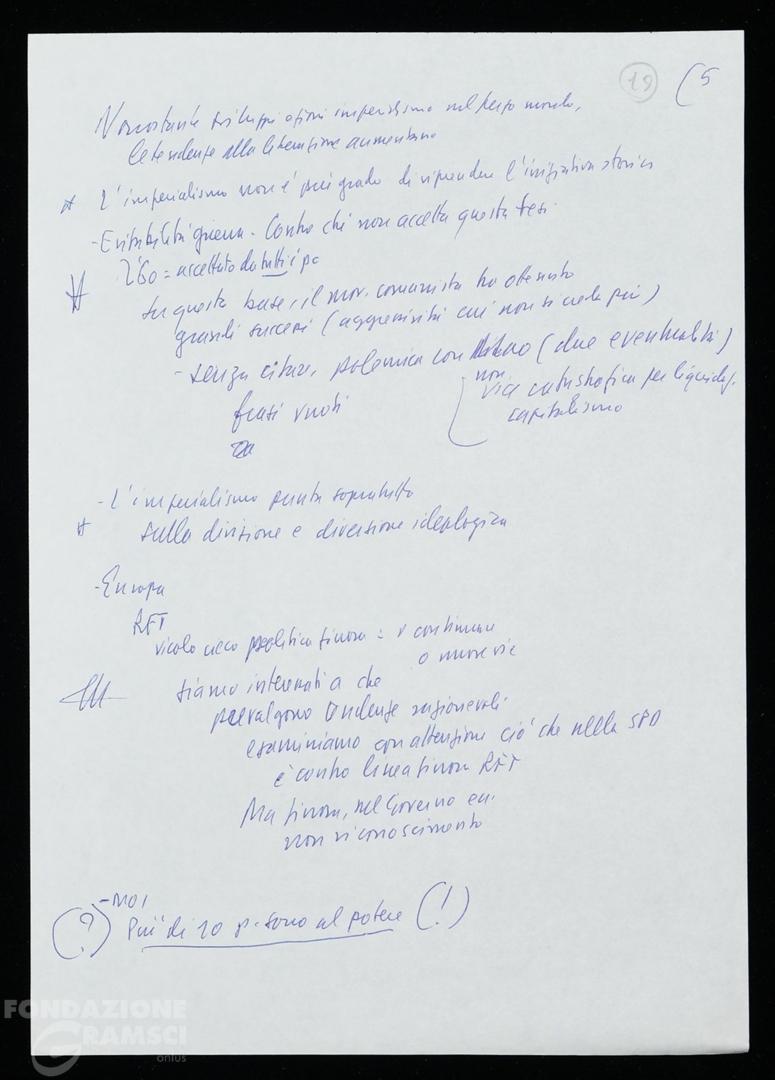 19 (5
Nonostante sviluppi azioni imperialismo nel terzo mondo,
le tendenze alla liberazione aumentano
# L'imperialismo non è più grado di riprendere l'iniziativa storica
- Evitabilità guerra. Contro chi non accetta questa tesi
# L'60 = accettato da tutti i pc
Su questa base, il mov. comunista ha ottenuto
grandi successi (aggressività cui non si vede più)
- senza citare, polemica con (due eventualità)
non
via catastrofica per liquidaz.
capitalismo
frasi vuoti
- L'imperialismo punta sopratutto
# sulla divisione e diversione ideologica
- Europa
RFT
vicolo cieco politica finora = o continuare
o nuove vie
siamo interessati a che
prevalgono tendenze ragionevoli
esaminiamo con attenzione ciò che nella SPD
è contro linea finora RFT
Ma finora, nel Governo
non riconoscimento
- MOI
(?) Più di 10 p. sono al potere (!)
FONDAZIONE
GRAMSCI
onlus